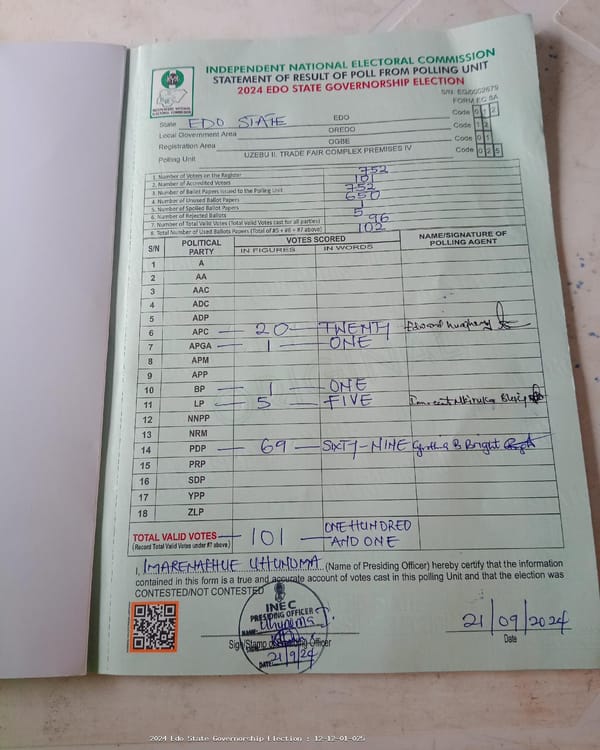 INDEPENDENT NATIONAL ELECTORAL COMMISSION
STATEMENT OF RESULT OF POLL FROM POLLING UNIT
2024 EDO STATE GOVERNORSHIP ELECTION
S/N: EG/0002679
FORM EC 8A
State EDO STATE EDO Code 1 2
Local Government Area OREDO Code 1 2
Registration Area OGBE Code 0 1
Polling Unit UZEBU II. TRADE FAIR COMPLEX PREMISES IV Code 0 2 5
1. Number of Voters on the Register 752
2. Number of Accredited Voters 101
3. Number of Ballot Papers Issued to the Polling Unit 752
4. Number of Unused Ballot Papers 650
5. Number of Spoiled Ballot Papers 1
6. Number of Rejected Ballots 5
7. Number of Total Valid Votes (Total Valid Votes cast for all parties) 96
8. Total Number of Used Ballots Papers (Total of #5 + #6 + #7 above) 102
S/N POLITICAL PARTY VOTES SCORED NAME/SIGNATURE OF POLLING AGENT
IN FIGURES IN WORDS
1 A
2 AA
3 AAC
4 ADC
5 ADP
6 APC — 20 — TWENTY
7 APGA — 1 — ONE
8 APM
9 APP
10 BP — 1 — ONE
11 LP — 5 — FIVE
12 NNPP
13 NRM
14 PDP — 69 — SIXTY-NINE B Bright
15 PRP
16 SDP
17 YPP
18 ZLP
TOTAL VALID VOTES — 101 ONE HUNDRED
(Record Total Valid Votes under #7 above) — AND ONE
I, IMARENAPHUE UHUNOMA (Name of Presiding Officer) hereby certify that the information
contained in this form is a true and accurate account of votes cast in this polling Unit and that the election was
CONTESTED/NOT CONTESTED
INEC
PRESIDING OFFICER
NAME: Uhunoma
Sign/Stamp of Presiding Officer
DATE: 21/9/24
21/09/2024
Date
2024 Edo State Governorship Election : 12-12-01-025